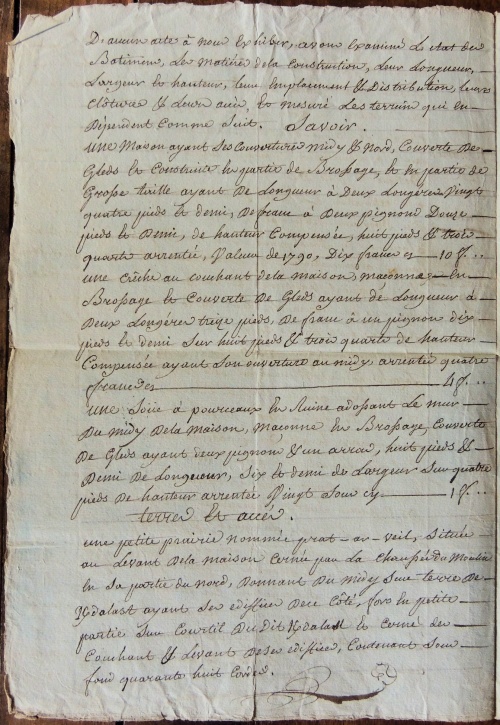 D'aucun acte à nous Exhiber, avons Examiné L'etat des
Batimens, La matiere de la Construction, Leur Longueur,
Largeur et hauteur, leur Emplacement & Distribution, leurs
clôtures & Leurs aires, et mesuré Les terreins qui en
Dépendent Comme suit. Savoir.
une Maison ayant Ses Couvertures midy & Nord, Couverte De
Gleds et Construite En partie de Brossage, et En partie de
Grosse taille ayant De Longueur à Deux Longères Vingt
quatre pieds et demi, De franc à Deux pignons Douze
pieds et Demi, de hauteur Compensée, huit pieds & trois
quarts arrentée, Valeur de 1790, Dix francs cy 10 f. ..
une Crêche au couchant de la maison, maçonnée En
Brossage et Couverte De Gleds ayant de Longueur à
Deux Longères treize pieds, De franc à un pignon dix
pieds et demi Sur huit pieds & trois quarts de hauteur
Compensée ayant Son ouverture au midy, arrentée quatre
francs cy 4 f. ..
une Soüe à pourceaux En Ruine adossant Le mur
Du Midy De la Maison, Maçonne En Brossage, Couverte
De Gleds ayant deux pignons & un arroi, huit pieds &
Demi De Longueur, Six et demi de Largeur Sur quatre
pieds De hauteur arrentée Vingt Sous cy 1 f. ..
terres et accès.
une petite prairie nommée prat-ar-veil, Située
au Levant De la maison Cernée par La chaussée du Moulin
En Sa partie du Nord, Donnant Du Midy Sur terre De
K/dalast ayant Ses édiffices De ce Côté, fors En petite
partie Sur Courtil Du dit K/dalast et Cerné des
Couchant & Levant De Ses édiffices, Contenant Sous
fond quarante huit Cordes.